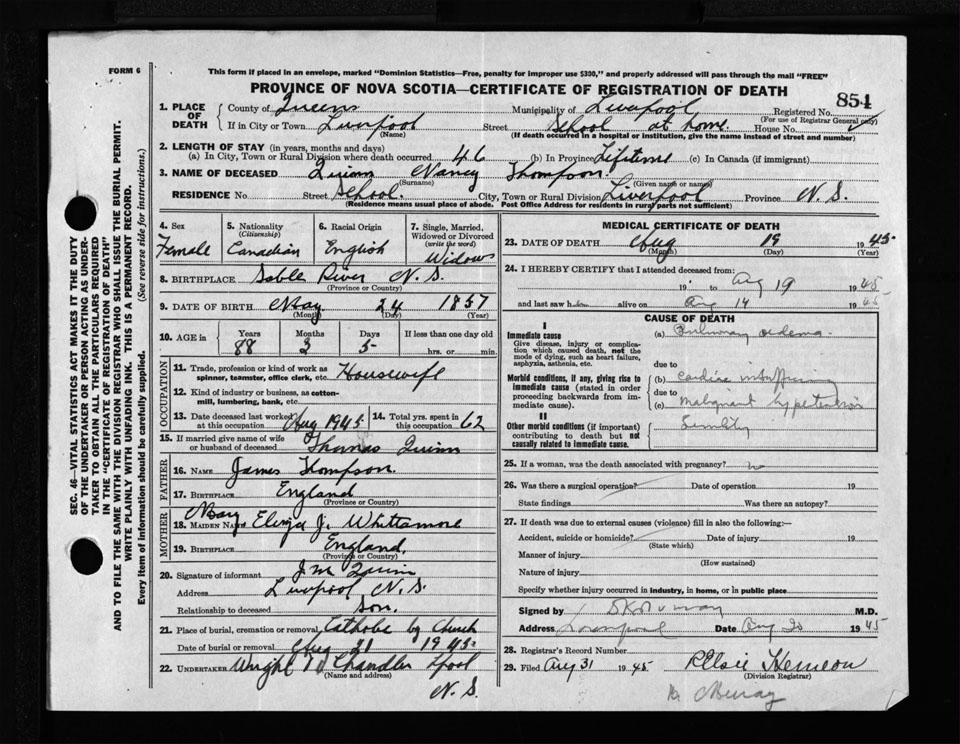 FORM 6
This form if placed in an envelope, marked "Dominion Statistics—Free, penalty for improper use $300," and properly addressed will pass through the mail "FREE"
PROVINCE OF NOVA SCOTIA—CERTIFICATE OF REGISTRATION OF DEATH
SEC. 46—VITAL STATISTICS ACT MAKES IT THE DUTY
OF THE UNDERTAKER OR PERSON ACTING AS UNDER-
TAKER TO OBTAIN ALL THE PARTICULARS REQUIRED
IN THE "CERTIFICATE OF REGISTRATION OF DEATH"
AND TO FILE THE SAME WITH THE DIVISION REGISTRAR WHO SHALL ISSUE THE BURIAL PERMIT.
WRITE PLAINLY WITH UNFADING INK. THIS IS A PERMANENT RECORD.
Every item of information should be carefully supplied. (See reverse side for instructions.)
1. PLACE OF DEATH County of Queens Municipality of Liverpool Registered No. 854
(For use of Registrar General only)
If in City or Town Liverpool Street School at home House No.
(Name) (If death occurred in a hospital or institution, give the name instead of street and number)
2. LENGTH OF STAY (in years, months and days)
(a) In City, Town or Rural Division where death occurred 46 (b) In Province Lifetime (c) In Canada (if immigrant)
3. NAME OF DECEASED Quinn Nancy Thompson
(Surname) (Given name or names)
RESIDENCE No. Street School City, Town or Rural Division Liverpool Province N.S.
(Residence means usual place of abode. Post Office Address for residents in rural parts not sufficient)
4. Sex Female
5. Nationality (Citizenship) Canadian
6. Racial Origin English
7. Single, Married, Widowed or Divorced (write the word) Widow
8. BIRTHPLACE Sable River N.S.
(Province or Country)
9. DATE OF BIRTH May 24 1857
(Month) (Day) (Year)
10. AGE in Years Months Days If less than one day old
88 2 5 hrs. or min.
OCCUPATION
11. Trade, profession or kind of work as spinner, teamster, office clerk, etc. Housewife
12. Kind of industry or business, as cotton-mill, lumbering, bank, etc.
13. Date deceased last worked at this occupation Aug 1945
14. Total yrs. spent in this occupation 62
15. If married give name of wife or husband of deceased Thomas Quinn
FATHER
16. NAME James Thompson
17. BIRTHPLACE England
(Province or Country)
MOTHER
18. MAIDEN NAME Mary Eliza J. Whittamore
19. BIRTHPLACE England
(Province or Country)
20. Signature of informant J.M. Quinn
Address Liverpool N.S.
Relationship to deceased son.
21. Place of burial, cremation or removal Church
Date of burial or removal Aug 21 1945
22. UNDERTAKER Wright Chandler Lpool
(Name and address)
N.S.
MEDICAL CERTIFICATE OF DEATH
23. DATE OF DEATH Aug 19 1945
(Month) (Day) (Year)
24. I HEREBY CERTIFY that I attended deceased from:
19 to Aug 19 1945
and last saw h alive on Aug 14 1945
CAUSE OF DEATH
I
Immediate cause (a) Pulmonary oedema
Give disease, injury or complica-
tion which caused death, not the
mode of dying, such as heart failure,
asphyxia, asthenia, etc.
due to
Morbid conditions, if any, giving rise to (b) cardiac
immediate cause (stated in order due to
proceeding backwards from im- (c) malignant hypertension
mediate cause).
II
Other morbid conditions (if important) Senility
contributing to death but not
causally related to immediate cause.
25. If a woman, was the death associated with pregnancy? no
26. Was there a surgical operation? Date of operation 19
State findings Was there an autopsy?
27. If death was due to external causes (violence) fill in also the following:—
Accident, suicide or homicide? Date of injury 19
(State which)
Manner of injury
(How sustained)
Nature of injury
Specify whether injury occurred in industry, in home, or in public place
Signed by Murray M.D.
Address Liverpool Date Aug 20 1945
28. Registrar's Record Number
29. Filed Aug 31 1945 Elsie Hemeon
(Division Registrar)
Murray